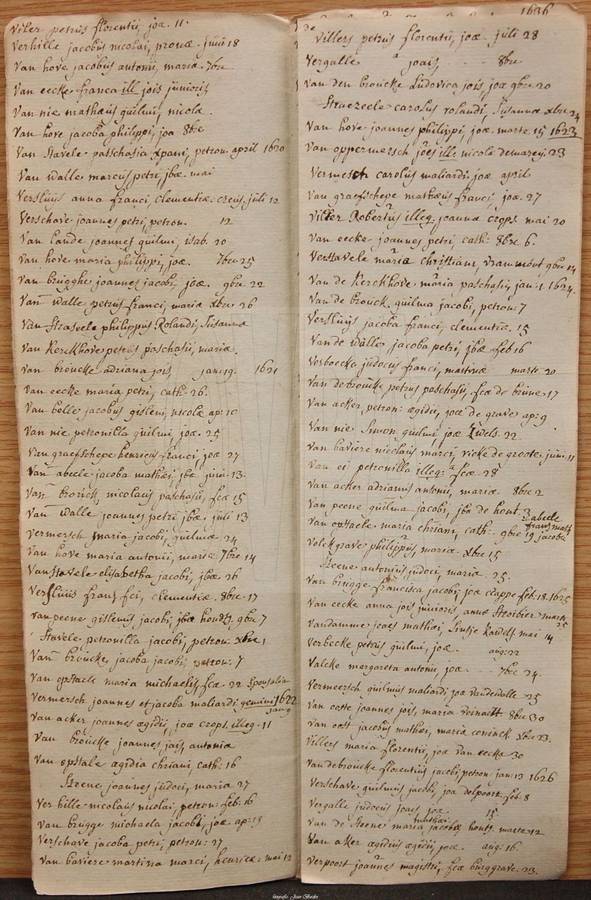 Viler petrus florentii, joæ. 11.
Verhille jacobus nicolai, pronæ. junii 18
Van hove jacobus antonii, maria. 7bre
Van eecke franca ill jois junioris
Van nie mathæus guilmi, nicola.
Van hove jacoba philippi, joa 8bre
Van Stavele paschasia xpani, petron. april 1620
Van walle marcus petri, jbæ. mai
Versluys anna franci, clementiæ. juli 12
Verschave joannes petri, petron. 12
Van lande joannes guilmi, isab. 20
Van hove maria philippi, joæ. 7bre 25
Van brugghe joannes jacobi, joæ. 9bre 22
Van walle petrus franci, maria xbre 26
Van Straseele philippus Rolandi, Susanna
Van Kerckhove petrus paschasii, maria.
Van broucke adriana jois jan: 19. 1621
Van eecke maria petri, cath. 26.
Van belle jacobus gisleni, nicole ap: 10
Van nie petronilla guilmi, joæ. 25
Van graefschepe henricus franci, joæ 27
Van abeele jacoba mathei, jbæ juni 13.
Van brouck nicolaus paschasii, fcæ 15
Van walle joannes petri jbæ. juli 13
Vermersch maria jacobi, guilmæ 24
Van hove maria antonii, mariæ 7bre 14
Van Stavele elisabetha jacobi, jbæ 26
Versluus franc fci, clementiæ. 8bre 17
Van peene gislenus jacobi, jbæ houdt, 9bre 7
Stavele petronilla jacobi, petron. xbre 1
Van broucke jacoba jacobi, petron. 7
Van opstaele maria michaelis, fcæ. 22
Vermersch joannes et jacoba maliardi gemini 1622
Van acker joannes ægidii, joæ crops. illeg. 11
Van broucke joannes jois, antonia
Van opstale ægidia chriani, cath. 16
Steene joannes judoci, maria 27
Ver hille nicolaus nicolai, petron. feb: 16
Van brugge michaela jacobi, joæ. ap: 13
Verschave jacoba petri, petron: 27
Van baviere martina marci, henricæ. mai 12
1636
Villers petrus florentii, joæ. juli 28
Vergalle jois 8bre
Van den broucke Ludovica jois, joæ 9bre 20
Straezeele carolus rolandi, Susannæ xbre 24
Van hove joannes philippi, joæ. marte 15 1623
Van oppermersch jões ill: nicole demarez. 23
Vermesch carolus maliardi, joæ april
Van graefschepe mathæus franci, joæ. 27
Viller Robertus illeg. joanna crops. mai 20
Van eecke joannes petri, cath: 8bre 6.
Verstavele maria christiani, 9bre 14
Van de Kerckhove maria paschasii, jan: 1. 1624.
Van de brouck guilma jacobi, petron: 7
Versluys jacoba franci, clementiæ. 15
Van de walle jacoba petri, jbæ feb 16
Verboecke judocus franci, martinæ marte 20
Van debroucke petrus paschasii, fcæ de brune 17
Van acker petron: ægidii, joæ de grave ap: 9
Van nie Simon guilmi joæ 22
Van baviere nicolaus marci, vickæ de groote juni 11
Van ei petronilla illeg: fcæ. 28
Van acker adrianus antonii, mariæ 8bre 2
Van peene guilma jacobi, jbæ de hout. 3
Van opstaele maria chriani, cath. 9bre 19
Volckgrave philippus maria. xbre 15
Steene antonius judoci, maria 25.
Van brugge francisca jacobi, joæ clappe feb. 18. 1625
Van eecke anna jois junioris, annæ marte 25
Vandamme joæs mathei, mai 14
Verbecke petrus guilmi, joæ. aug: 22
Valcke margareta antonii, joæ. 7bre 24.
Vermeersch guilmus maliardi joæ vandewalle 25
Van coste joannes jois, maria 8bre 30
Van oost jacobus mathei, maria coninck xbre 23.
Villers maria florentii, joæ van eecke 30
Vandebroucke florentius jacobi, petron jan: 13 1626
Verschave guilmus jacobi, joæ delpoort feb: 8
Vergalle judocus joais joæ 15
Van de Steene maria jacobæ houtt. marte 12
Van aker ægidius ægidii, joæ. aug: 16
Verpoort joannes magistri, fcæ burggrave. 23.